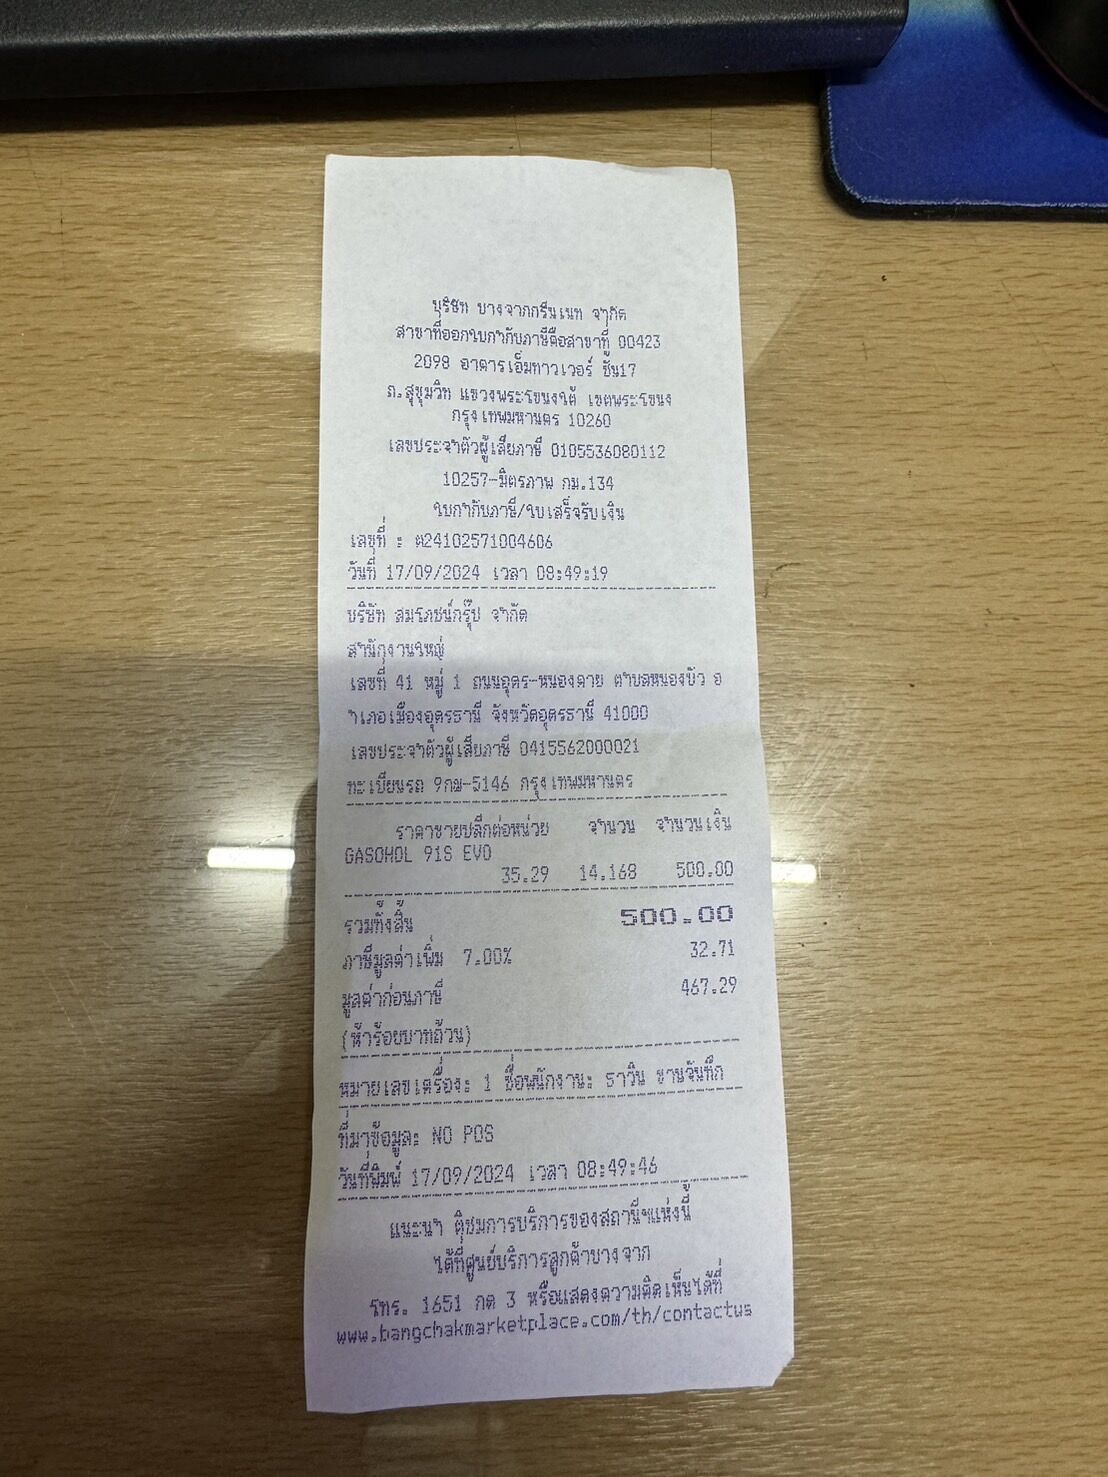 บริษัท บางจากกรีนเนท จำกัด
สาขาที่ออกใบกำกับภาษีคือสาขาที่ 00423
2098 อาคารเอ็มทาวเวอร์ ชั้น17
ถ.สุขุมวิท แขวงพระโขนงใต้ เขตพระโขนง
กรุงเทพมหานคร 10260
เลขประจำตัวผู้เสียภาษี 0105536080112
10257-มิตรภาพ กม.134
ใบกำกับภาษี/ใบเสร็จรับเงิน
เลขที่ : ต24102571004606
วันที่ 17/09/2024 เวลา 08:49:19
บริษัท สมโภชน์กรุ๊ป จำกัด
สำนักงานใหญ่
เลขที่ 41 หมู่ 1 ถนนอุดร-หนองคาย ตำบลหนองบัว อ
ำเภอเมืองอุดรธานี จังหวัดอุดรธานี 41000
เลขประจำตัวผู้เสียภาษี 0415562000021
ทะเบียนรถ 9กม-5146 กรุงเทพมหานคร
ราคาขายปลีกต่อหน่วย จำนวน จำนวนเงิน
GASOHOL 91S EVO
35.29 14.168 500.00
รวมทั้งสิ้น 500.00
ภาษีมูลค่าเพิ่ม 7.00% 32.71
มูลค่าก่อนภาษี 467.29
(ห้าร้อยบาทถ้วน)
หมายเลขเครื่อง: 1 ชื่อพนักงาน: ธาวิน ขานจันทึก
ที่มาข้อมูล: NO POS
วันที่พิมพ์ 17/09/2024 เวลา 08:49:46
แนะนำ ติชมการบริการของสถานีฯแห่งนี้
ได้ที่ศูนย์บริการลูกค้าบางจาก
โทร. 1651 กด 3 หรือแสดงความคิดเห็นได้ที่
www.bangchakmarketplace.com/th/contactus